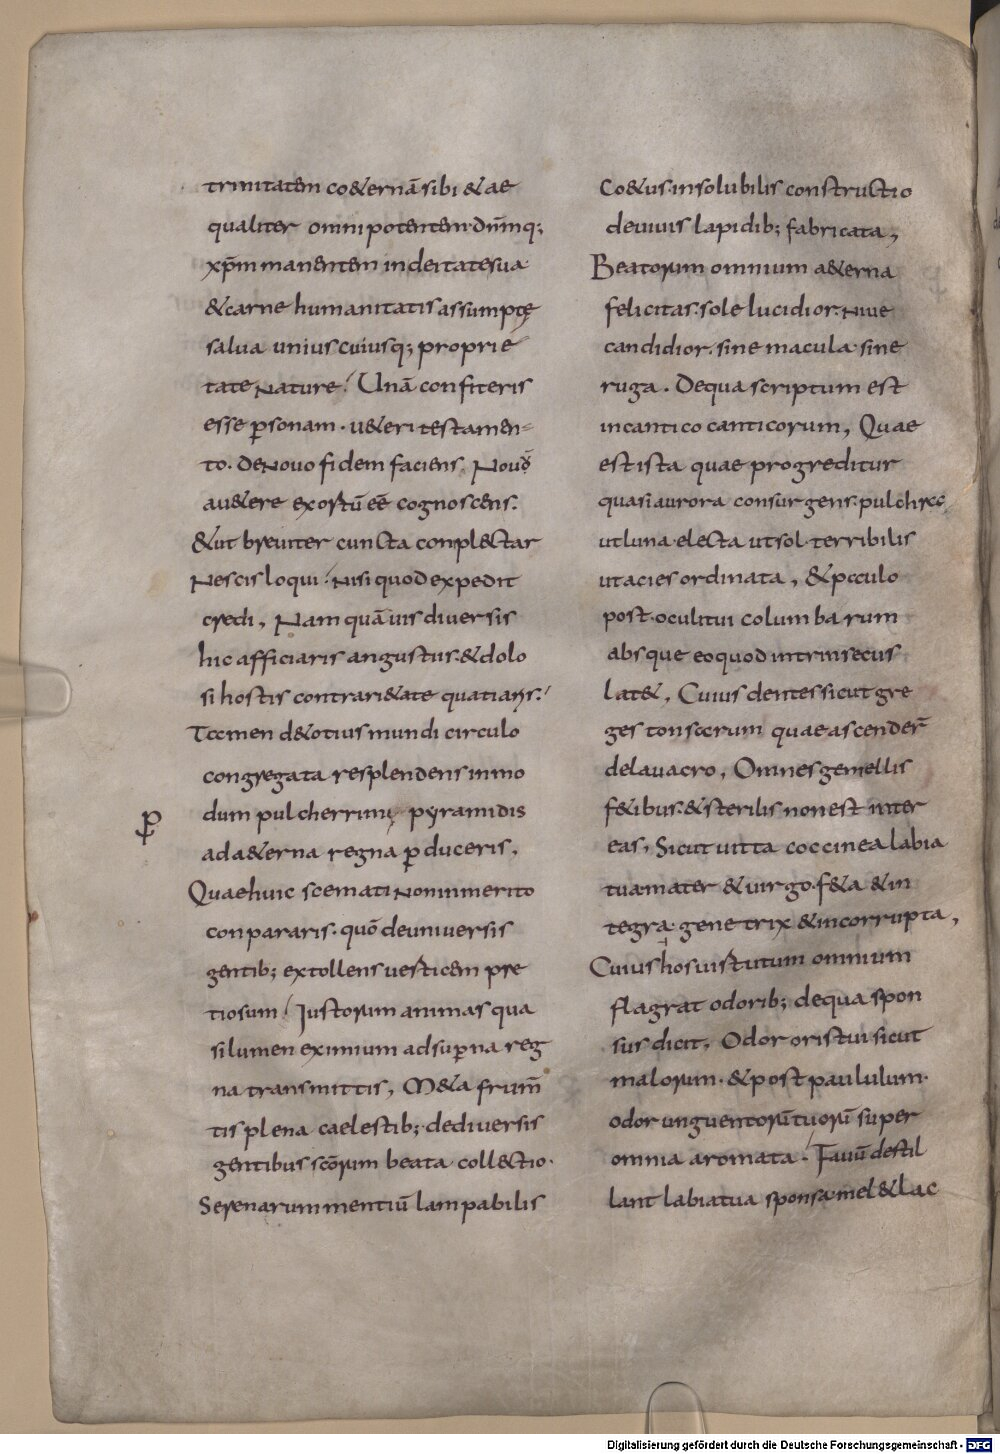 trinitatem co&ernā sibi & ae
qualiter omnipotentem dn̄mq;
xp̄m manentem in deitate sua
& carne humanitatis assumptę
salua unius cuiusq; proprie
tate nature! Unā confiteris
esse p̱sonam · u&eri testamen-
to · de nouo fidem faciens. Nouū
a u&ere exortū eē cognoscens.
& ut breuiter cuncta conpl&ctar
Nescis loqui! nisi quod expedit
credi, Nam quāuis diversis
hic afficiaris angustus & dolo
si hostis contrari&ate quatiaris!
Tamen d&otius mundi circulo
congregata resplendens in mo
dum pulcherrimę pyramidis
ad a&erna regna ꝓduceris.
Quae huic scemati non inmerito
conpararis · quō de universis
gentib; extollens uesticem pre
tiosum! Justorum animas qua
si lumen eximium ad sup̱na reg
na transmittis, M&a frum̄
tis plena caelestib;· de diversis
gentibus scōrum beata coll&ctio·
Serenarum mentiū lampabilis
Co&us· insolubilis constructio
de uiuis lapidib; fabricata,
Beatorum omnium a&erna
felicitas· sole lucidior· niue
candidior· sine macula· sine
ruga. De qua scriptum est
in cantico canticorum, Quae
est ista quae progreditur
quasi aurora consurgens· pulchra
ut luna· electa ut sol· terribilis
ut acies ordinata, & paulo
post· oculi tui columbarum
absque eo quod intrinsecus
lat&, Cuius dentes sicut gre
ges tonsarum quae ascender̄
de lauacro, Omnes gemellis
f&ibus· & sterilis non est inter
eas, Sicut uitta coccinea labia
tua mater & uirgo· f&a & in
tegra· genetrix & incorrupta,
Cuius hos uirtutum omnium
flagrat odorib; de qua spon
sus dicit, Odor oris tui sicut
malorum· & post paululum·
odor unguentorū tuorū super
omnia aromata· Fauū destil
lant labia tua sponsa mel & lac
Digitalisierung gefördert durch die Deutsche Forschungsgemeinschaft - DFG